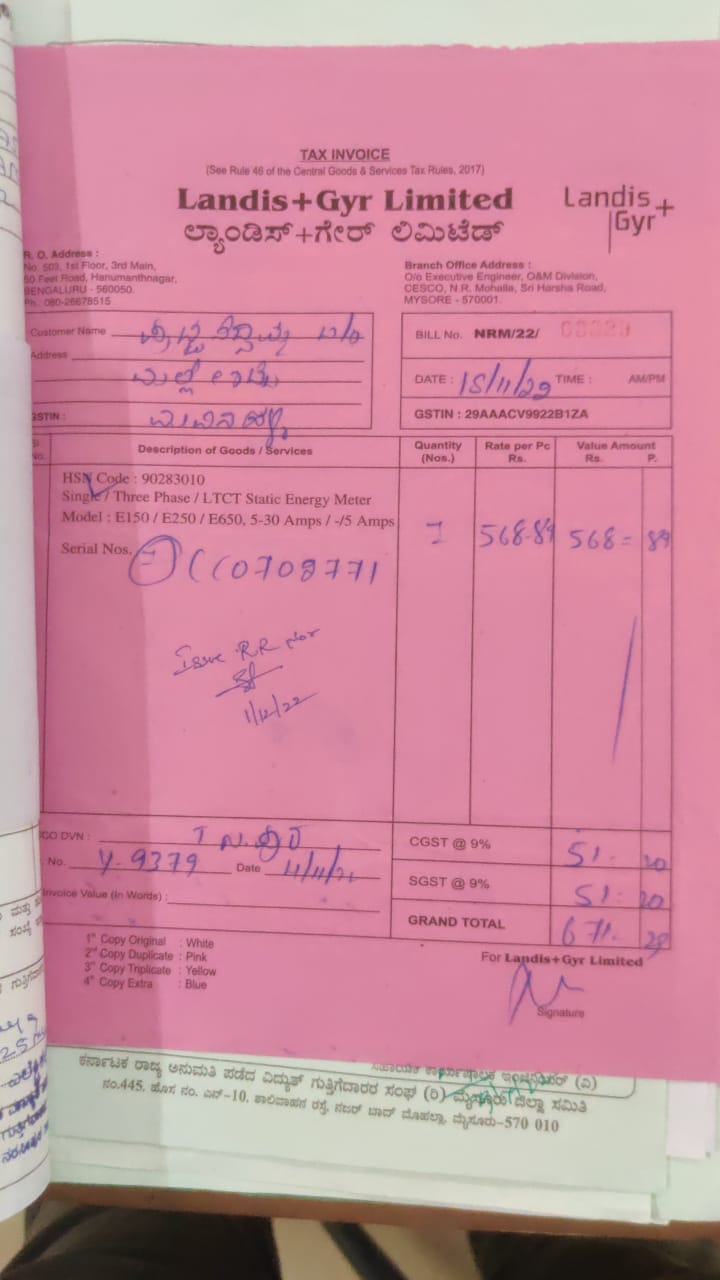 TAX INVOICE
(See Rule 46 of the Central Goods & Services Tax Rules, 2017)
Landis+Gyr Limited
ಲ್ಯಾಂಡಿಸ್+ಗೇರ್ ಲಿಮಿಟೆಡ್
Landis+
Gyr
R. O. Address :
No. 503, 1st Floor, 3rd Main,
50 Feet Road, Hanumanthnagar,
BENGALURU - 560050.
Ph : 080-26678515
Branch Office Address :
O/o Executive Engineer, O&M Division,
CESCO, N.R. Mohalla, Sri Harsha Road,
MYSORE - 570001.
Customer Name
Address
GSTIN :
BILL No. NRM/22/
DATE : 15/11/22 TIME : AM/PM
GSTIN : 29AAACV9922B1ZA
No. Description of Goods / Services Quantity (Nos.) Rate per Pc Rs. Value Amount Rs. P.
HSN Code : 90283010
Single / Three Phase / LTCT Static Energy Meter
Model : E150 / E250 / E650, 5-30 Amps / -/5 Amps
1 568-89 568= 89
Serial Nos. CC0708771
Issue RR
1/12/22
DVN :
No. Y-9379 Date
Invoice Value (in Words) :
CGST @ 9% 51. 20
SGST @ 9% 51. 20
GRAND TOTAL 671. 29
1st Copy Original : White
2nd Copy Duplicate : Pink
3rd Copy Triplicate : Yellow
4th Copy Extra : Blue
For Landis+Gyr Limited
Signature
ಕರ್ನಾಟಕ ರಾಜ್ಯ ಅನುಮತಿ ಪಡೆದ ವಿದ್ಯುತ್ ಗುತ್ತಿಗೆದಾರರ ಸಂಘ (ರಿ) ಮೈಸೂರು ಜಿಲ್ಲಾ ಸಮಿತಿ
ನಂ.445, ಹೊಸ ನಂ. ಎನ್-10, ಶಾಲಿವಾಹನ ರಸ್ತೆ, ನಜರ್ ಬಾದ್ ಮೊಹಲ್ಲಾ, ಮೈಸೂರು-570 010